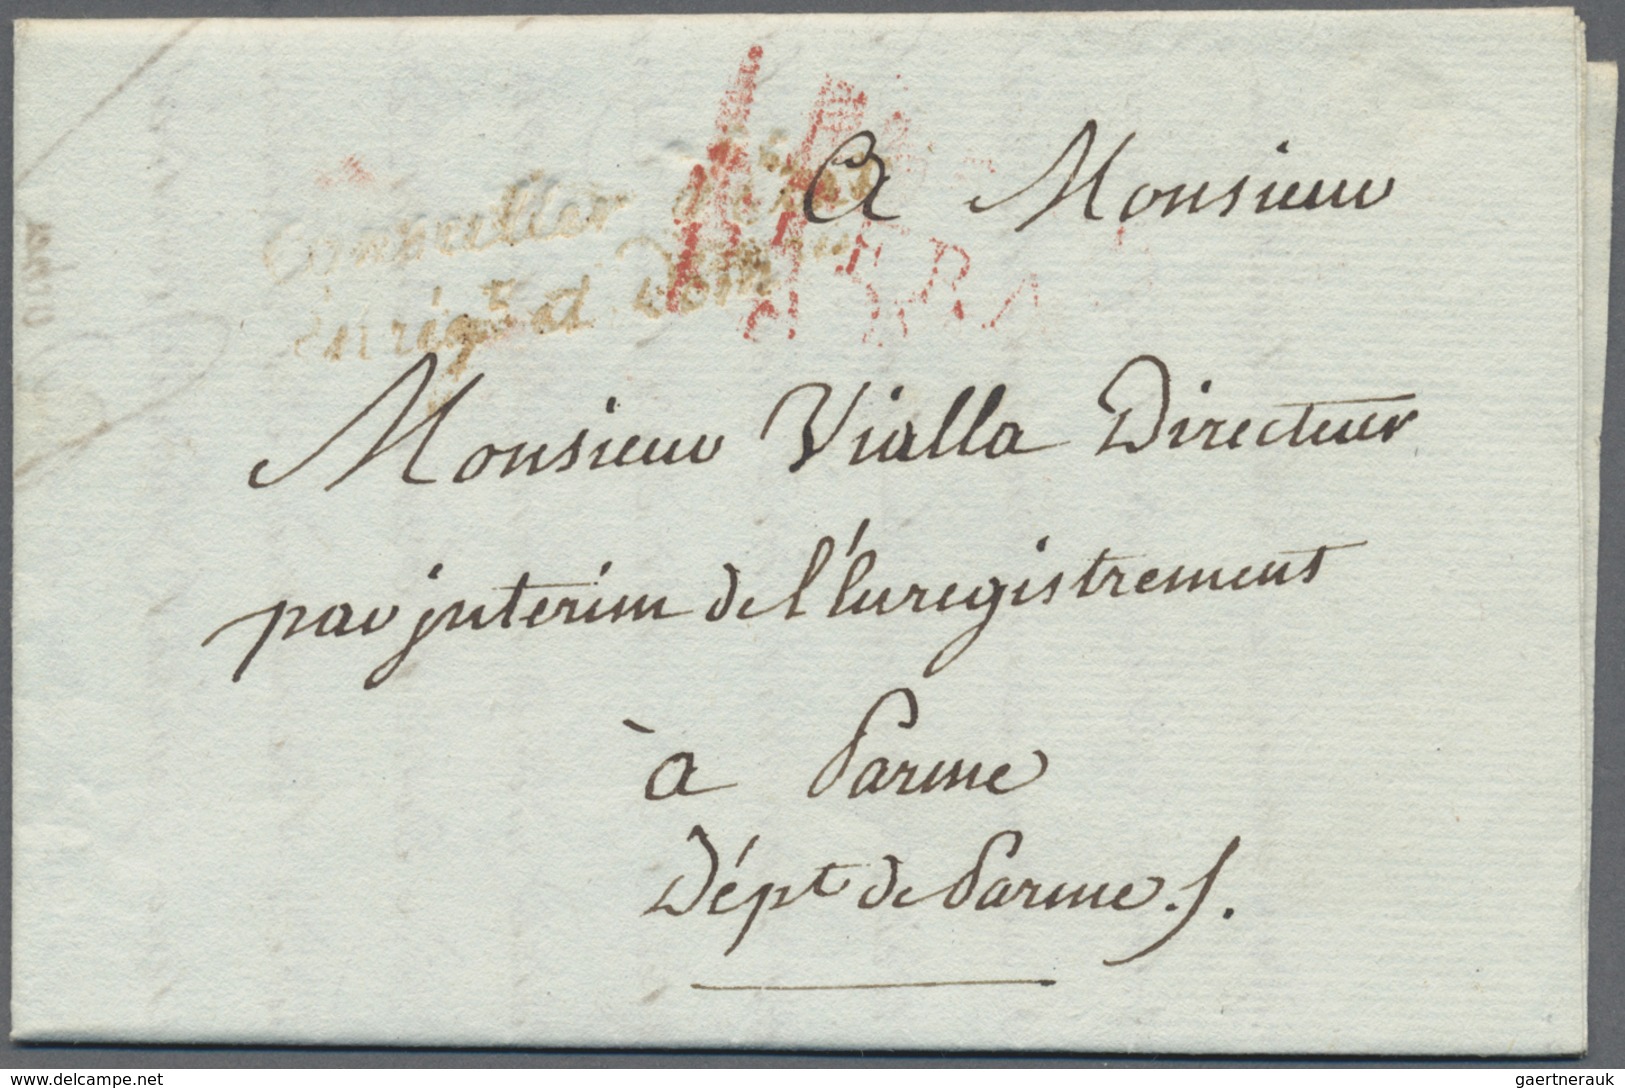 Conseiller d'état
Dir.
enreg.t et dom.
A Monsieur
Monsieur Vialla Directeur
par jnterim de l'Enregistrement
à Parme
Dépt. de Parme ./.
delcampe.net
gaertnerauk